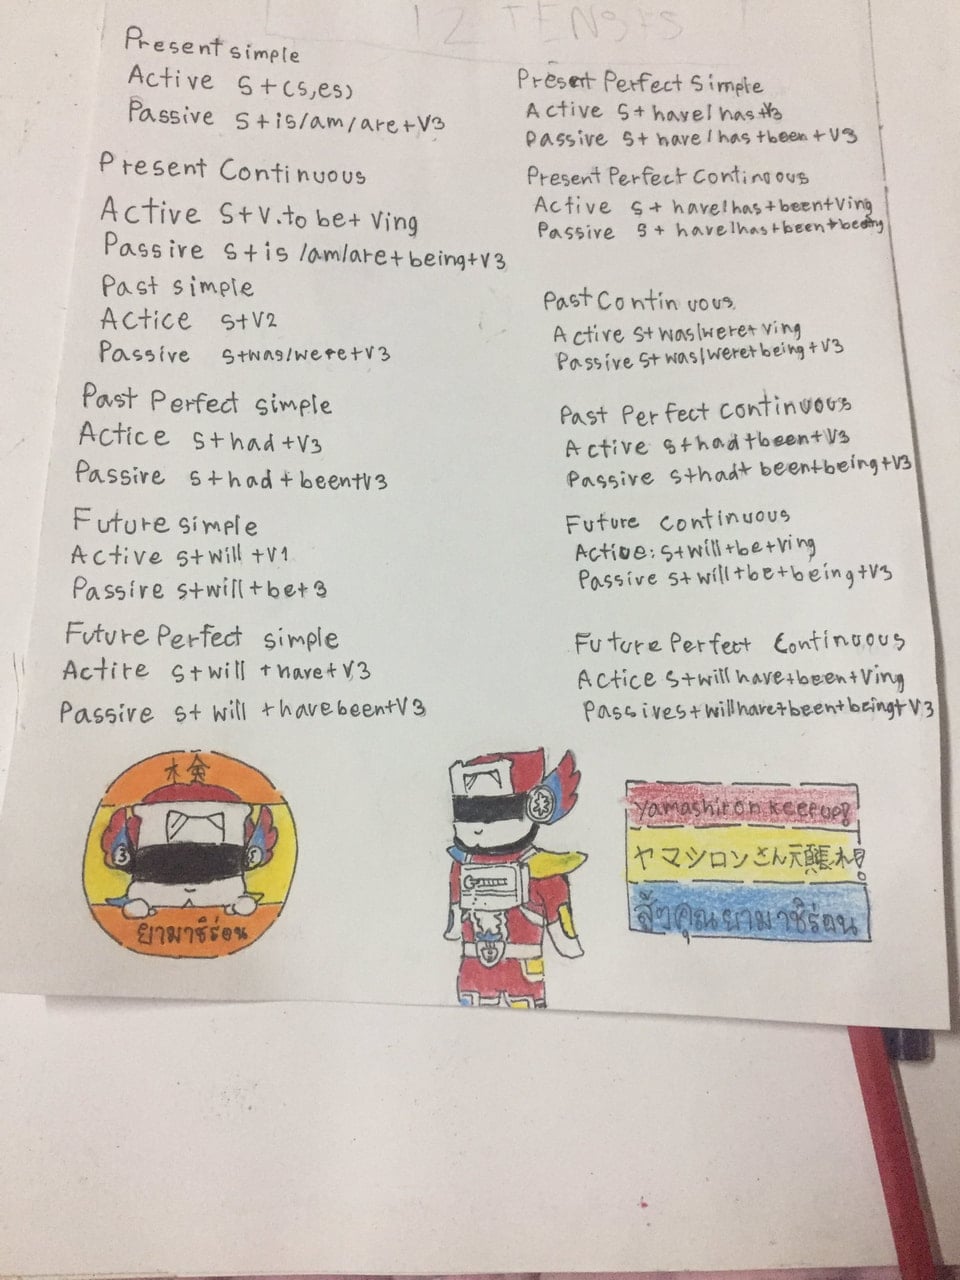 12 TENSES
Present simple
Active S+(s,es)
Passive S+is/am/are+V3
Present Continuous
Active S+V.to be+Ving
Passive S+is/am/are+being+V3
Past simple
Actice S+V2
Passive S+was/were+V3
Past Perfect simple
Actice S+had+V3
Passive S+had+been+V3
Future simple
Active S+will+V1
Passive S+will+be+3
Future Perfect simple
Active S+will+have+V3
Passive S+will+have been+V3
Present Perfect Simple
Active S+have/has+V3
Passive S+have/has+been+V3
Present Perfect Continuous
Active S+have/has+been+Ving
Passive S+have/has+been+being
Past Continuous
Active S+was/were+Ving
Passive S+was/were+being+V3
Past Perfect continuous
Active S+had+been+V3
Passive S+had+been+being+V3
Future continuous
Active: S+will+be+Ving
Passive S+will+be+being+V3
Future Perfect Continuous
Actice S+will have+been+Ving
Passive S+will have+been+being+V3
ยามาชิร่อน
yamashiron keep up!
ヤマシロンさん
คุณยามาชิร่อน